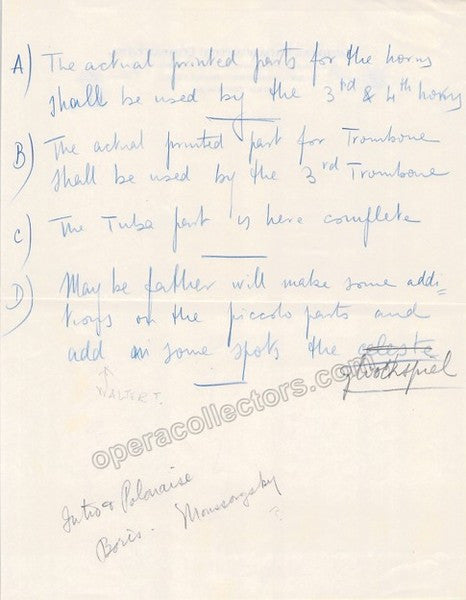 A) The actual printed parts for the horns
shall be used by the 3rd & 4th horns
B) The actual printed part for Trombone
shall be used by the 3rd Trombone
C) The Tuba part is here complete
D) May be father will make some addi=
tions on the piccolo parts and
add in some spots the celeste
glockspiel
WALTER T.
operacollectors.com
Intro & Polonaise
Boris. Moussorgsky